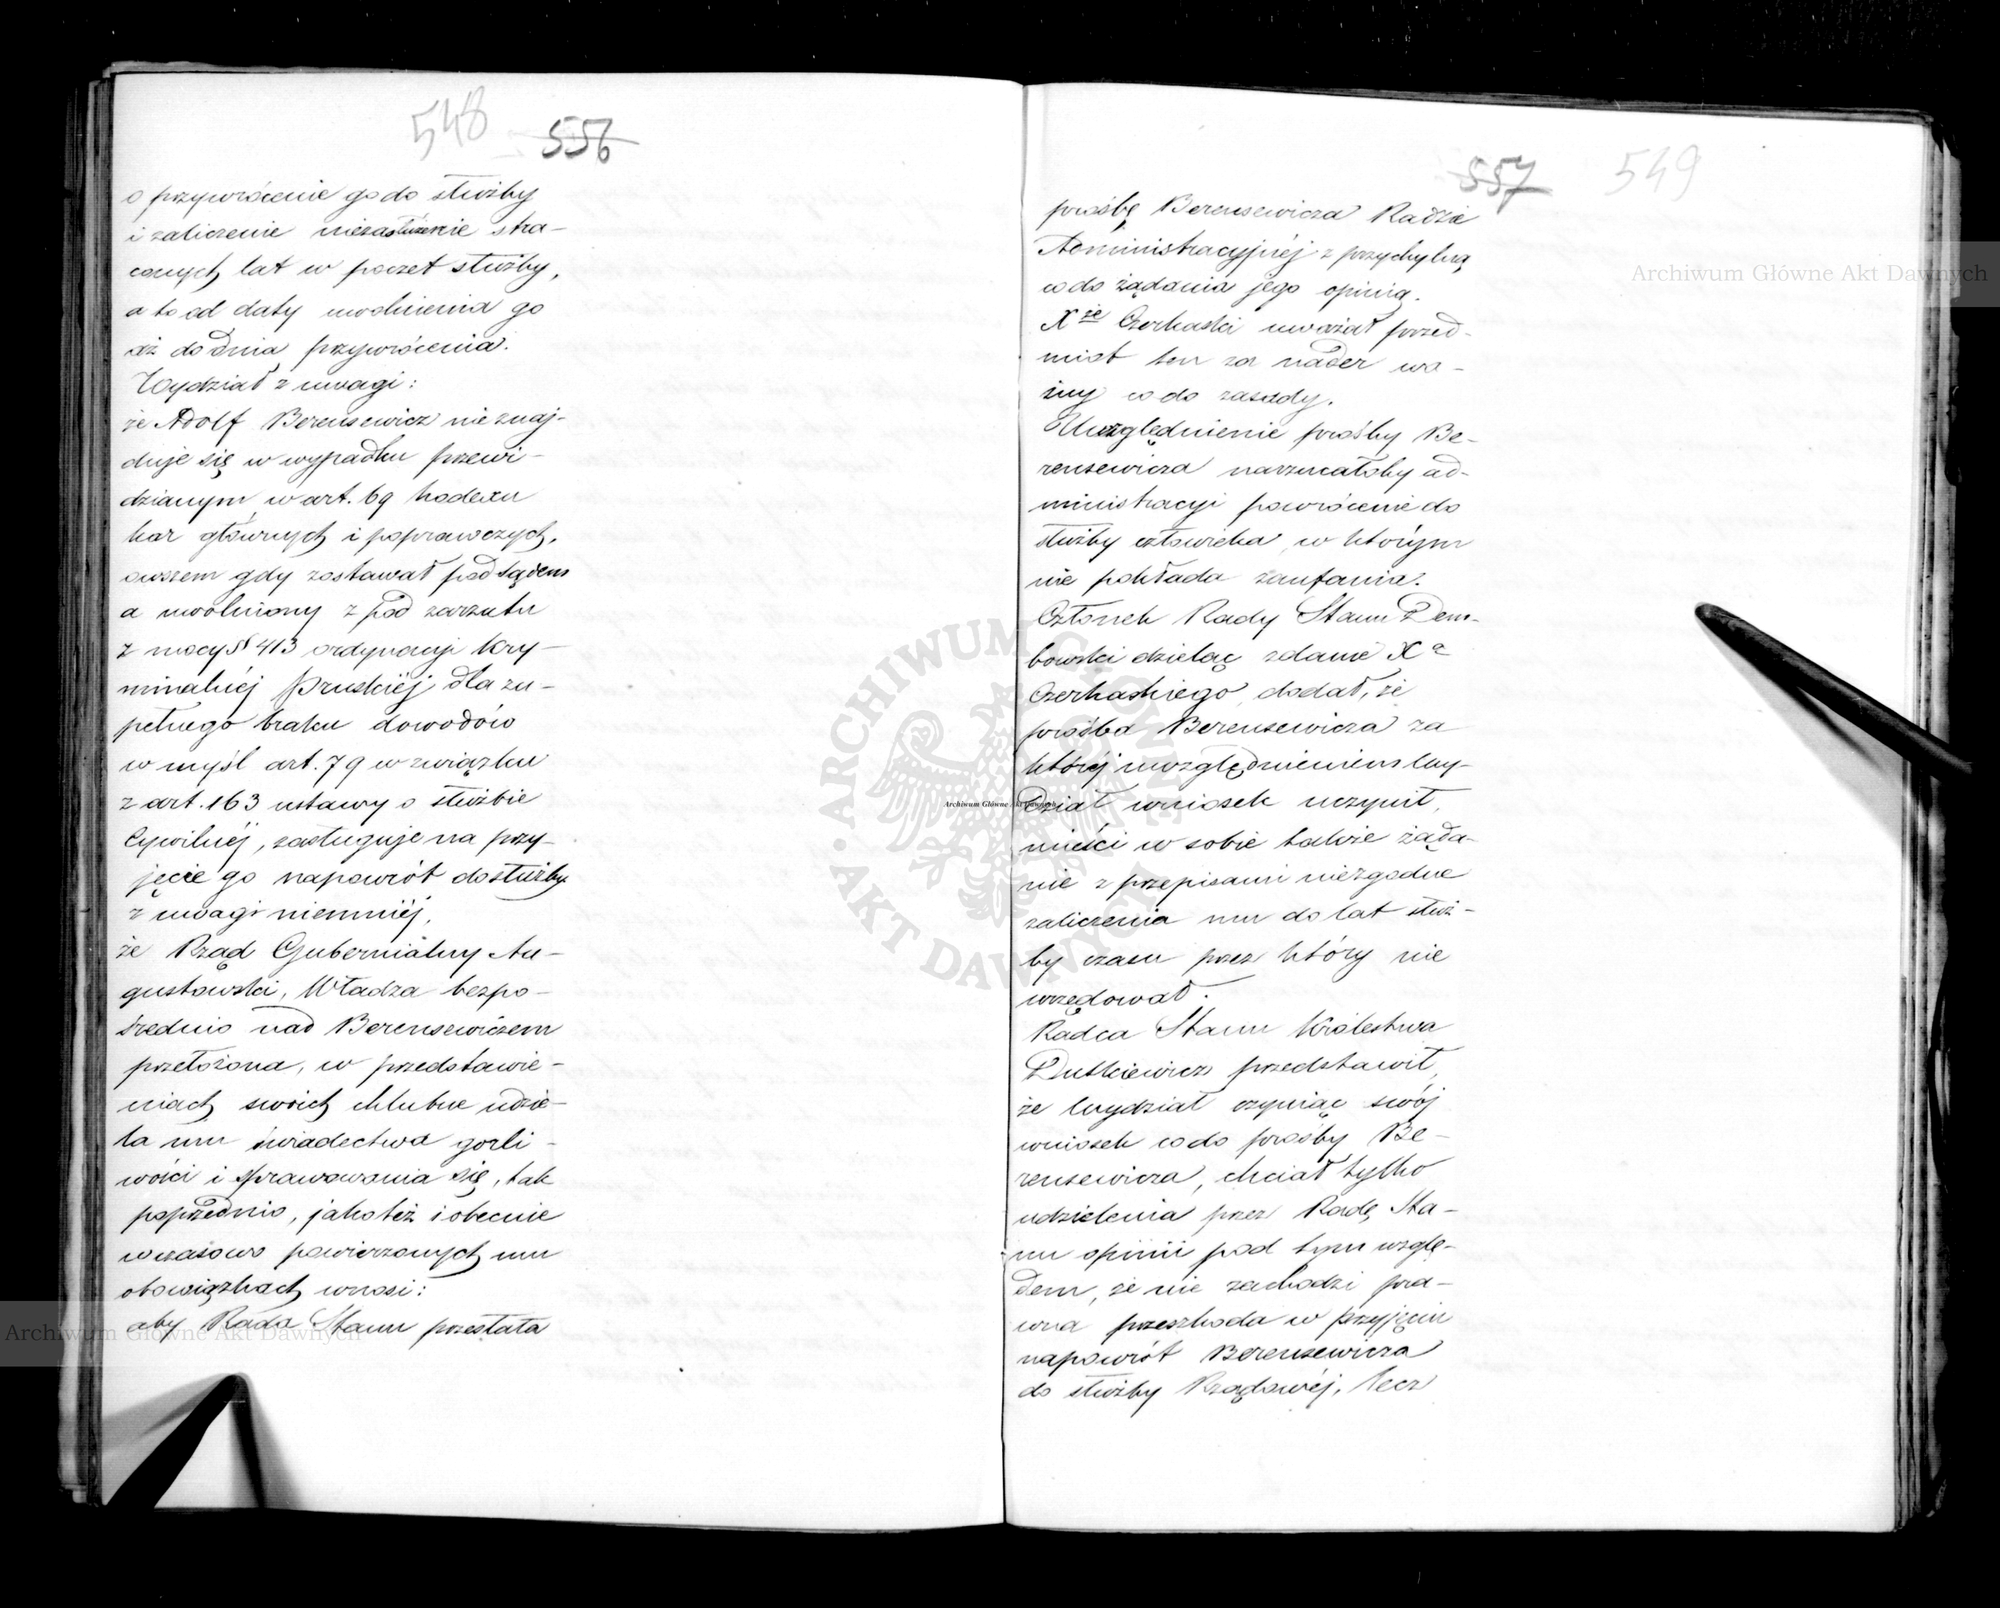 548 556
o przywrócenie go do służby
i zaliczenie niezasłużenie stra-
conych lat w poczet służby,
a to od daty uwolnienia go
aż do dnia przywrócenia.
Wydział z uwagi:
że Adolf Berensewicz nie znaj-
duje się w wypadku przewi-
dzianym w art. 69 kodexu
kar głównych i poprawczych,
owszem gdy zostawał pod sądem
a uwolniony z pod zarzutu
z mocy § 413 ordynacyi kry-
minalnéj Pruskiéj dla zu-
pełnego braku dowodów
w myśl art. 79 w związku
z art. 163 ustawy o służbie
Cywilnéj, zasługuje na przy-
jęcie go napowrót do służby
z uwagi niemniéj,
że Rząd Gubernialny Au-
gustowski, Władza bezpo-
średnio nad Berensewiczem
przełożona, w przedstawie-
niach swoich chlubne udzie-
la mu świadectwa gorli-
wości i sprawowania się, tak
poprzednio, jakoteż i obecnie
w czasowo powierzonych mu
obowiązkach wnosi:
aby Rada Stanu przesłała
557 549
prośbę Berensewicza Radzie
Administracyjnéj z przychylną
co do żądania jego opinią.
Xże Czerkaski uważał przed-
miot ten za nader wa-
żny co do zasady.
Uwzględnienie prośby Be-
rensewicza narzucałoby ad-
ministracyi powrócenie do
służby człowieka, w którym
nie pokłada zaufania.
Członek Rady Stanu Dem-
bowski dzieląc zdanie Xa
Czerkaskiego, dodał, że
prośba Berensewicza za
któréj uwzględnieniem Wy-
dział wniosek uczynił,
mieści w sobie także żąda-
nie z przepisami niezgodne
zaliczenia mu do lat służ-
by czasu przez który nie
urzędował.
Radca Stanu Królestwa
Dutkiewicz przedstawił,
że Wydział czyniąc swój
wniosek co do prośby Be-
rensewicza, chciał tylko
udzielenia przez Radę Sta-
nu opinii pod tym wzglę-
dem, że nie zachodzi pra-
wna przeszkoda w przyjęciu
napowrót Berensewicza
do służby Rządowéj, lecz
Archiwum Główne Akt Dawnych
Archiwum Główne Akt Dawnych
Archiwum Główne Akt Dawnych
ARCHIWUM GŁÓWNE · AKT DAWNYCH ·